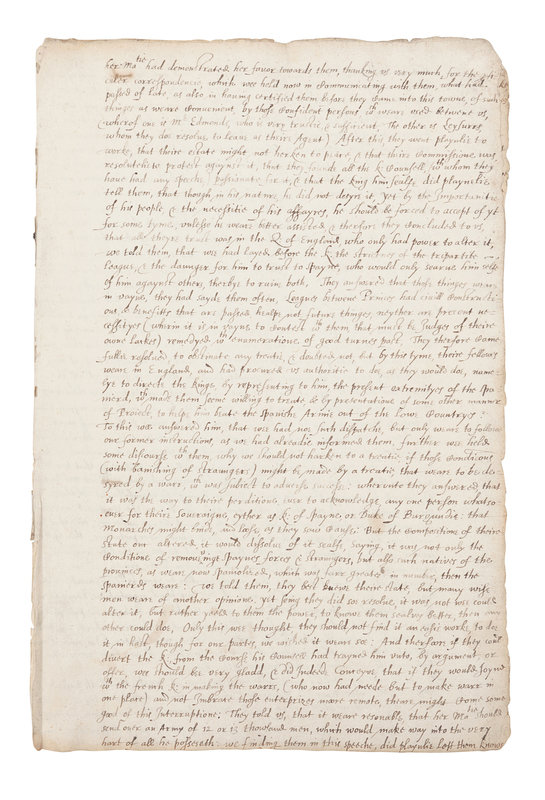 her Ma:tie had demonstrated her favor towards them, thanking us very much, for the
correspondencie, which we held now in Communicating with them, what had
passed of late, as also in having certified them before they Came into this towne, of such
things as weare Convenient, by those Confident persons, wch weare used betweene us,
wherof one is Mr Edmonds, who is very trustie & sufficient, The other is
whom they doe resolve to leave as theire Agent) After this they went playnlie to
worke, that theire estate might not herken to peace, & that theire Commissione was
resolutelie protest against it, that they founde all the k. Counsell, wth whom they
have had any speeche, passionate for it, & that the king him selfe, did playnelie
tell them, that though in his nature he did not desyre it, yet by the importunitie
of his people, & the necessitie of his affayres, he should be forced to accept of yt
for some tyme, unlesse he weare better assisted, & therfore they Concluded to us,
that all theyre trust was in the Q of England, who only had power to alter it,
we told them, that we had layed before the K. the strictnes of the tripartite
league, & the daunger for him to trust to Spayne, who would only searve him selfe
of him agaynst others, therby to ruin both, They answered that those thinges weare
in vayne, they had sayde them often, Leagues betwene Princes had civill Constructi-
ons, & benefitts that are passed healpe not future thinges, neyther are present ne-
cessityes (wherin it is in vayne to Contest wth them that must be Judges of theire
owne Lackes) remedyed wth enumerations of good turnes past. They therfore Came
fullie resolved to obstinate any treatie, & doubted not but by this tyme, theire fellows
weare in England, and had procured us authoritie to doe, as they would doe, name-
lye to directe the kinge, by representing to him, the present extremityes of the Spa-
niards, wch made them soe willing to treate, & by presentations of some other manner
of Proiect, to helpe him beate the Spanish Armie out of the Lowe Countryes:
To this we answered him, that we had no such dispatche, but only weare to followe
our former instructions, as we had alreadie informed them, further we held
some discourse wth them, why we should not harken to a treatie, if those Conditions
(with banishing of straungers) might be made by a treatie, that weare to be de-
syred by a warr, wch was subiect to adverse successe: wherunto they answered that
it was the way to theire perditione, ever to acknowledge any one person whatso-
ever for their Soveraigne, eyther as K. of Spayne, or Duke of Burgundie: that
Monarches might binde, and loose, as they sawe Cause: But the Composition of theire
state once altered, it would dissolve of it sealfe, saying, it was not only the
Conditione of removinge Spaynes forces & straungers, but also such natives of the
provinces, as weare now Spaniolized, which was farre greater in number, then the
Spaniards weare: we told them, they best knewe theire state, but many wise
men weare of another opinion, yet seing they did soe resolve, it was not we could
alter it, but rather yeelde to them the power, to knowe them sealves better, then any
other could doe, Only this we thought, they should not find it an easie worke, to doe
it in hast, though for our partes, we wished it weare soe: And therfore if they could
divert the K. from the Course his Counsell had trayned him unto, by argument, or
offer, we should be very gladd, & did indeede Conceyve, that if they would joyne
wth the french K. in making the warrs, (who now had neede but to make warr in
one place) and not imbrace those enterprizes more remote, theare might Come some
good of this Interruptione: They told us, that it weare resonable, that her Ma:tie should
send over an Army of 12 or 13 thousand men, which would make way into the very
hart of all he possesseth: we finding them in this speeche, did playnlie lett them knowe